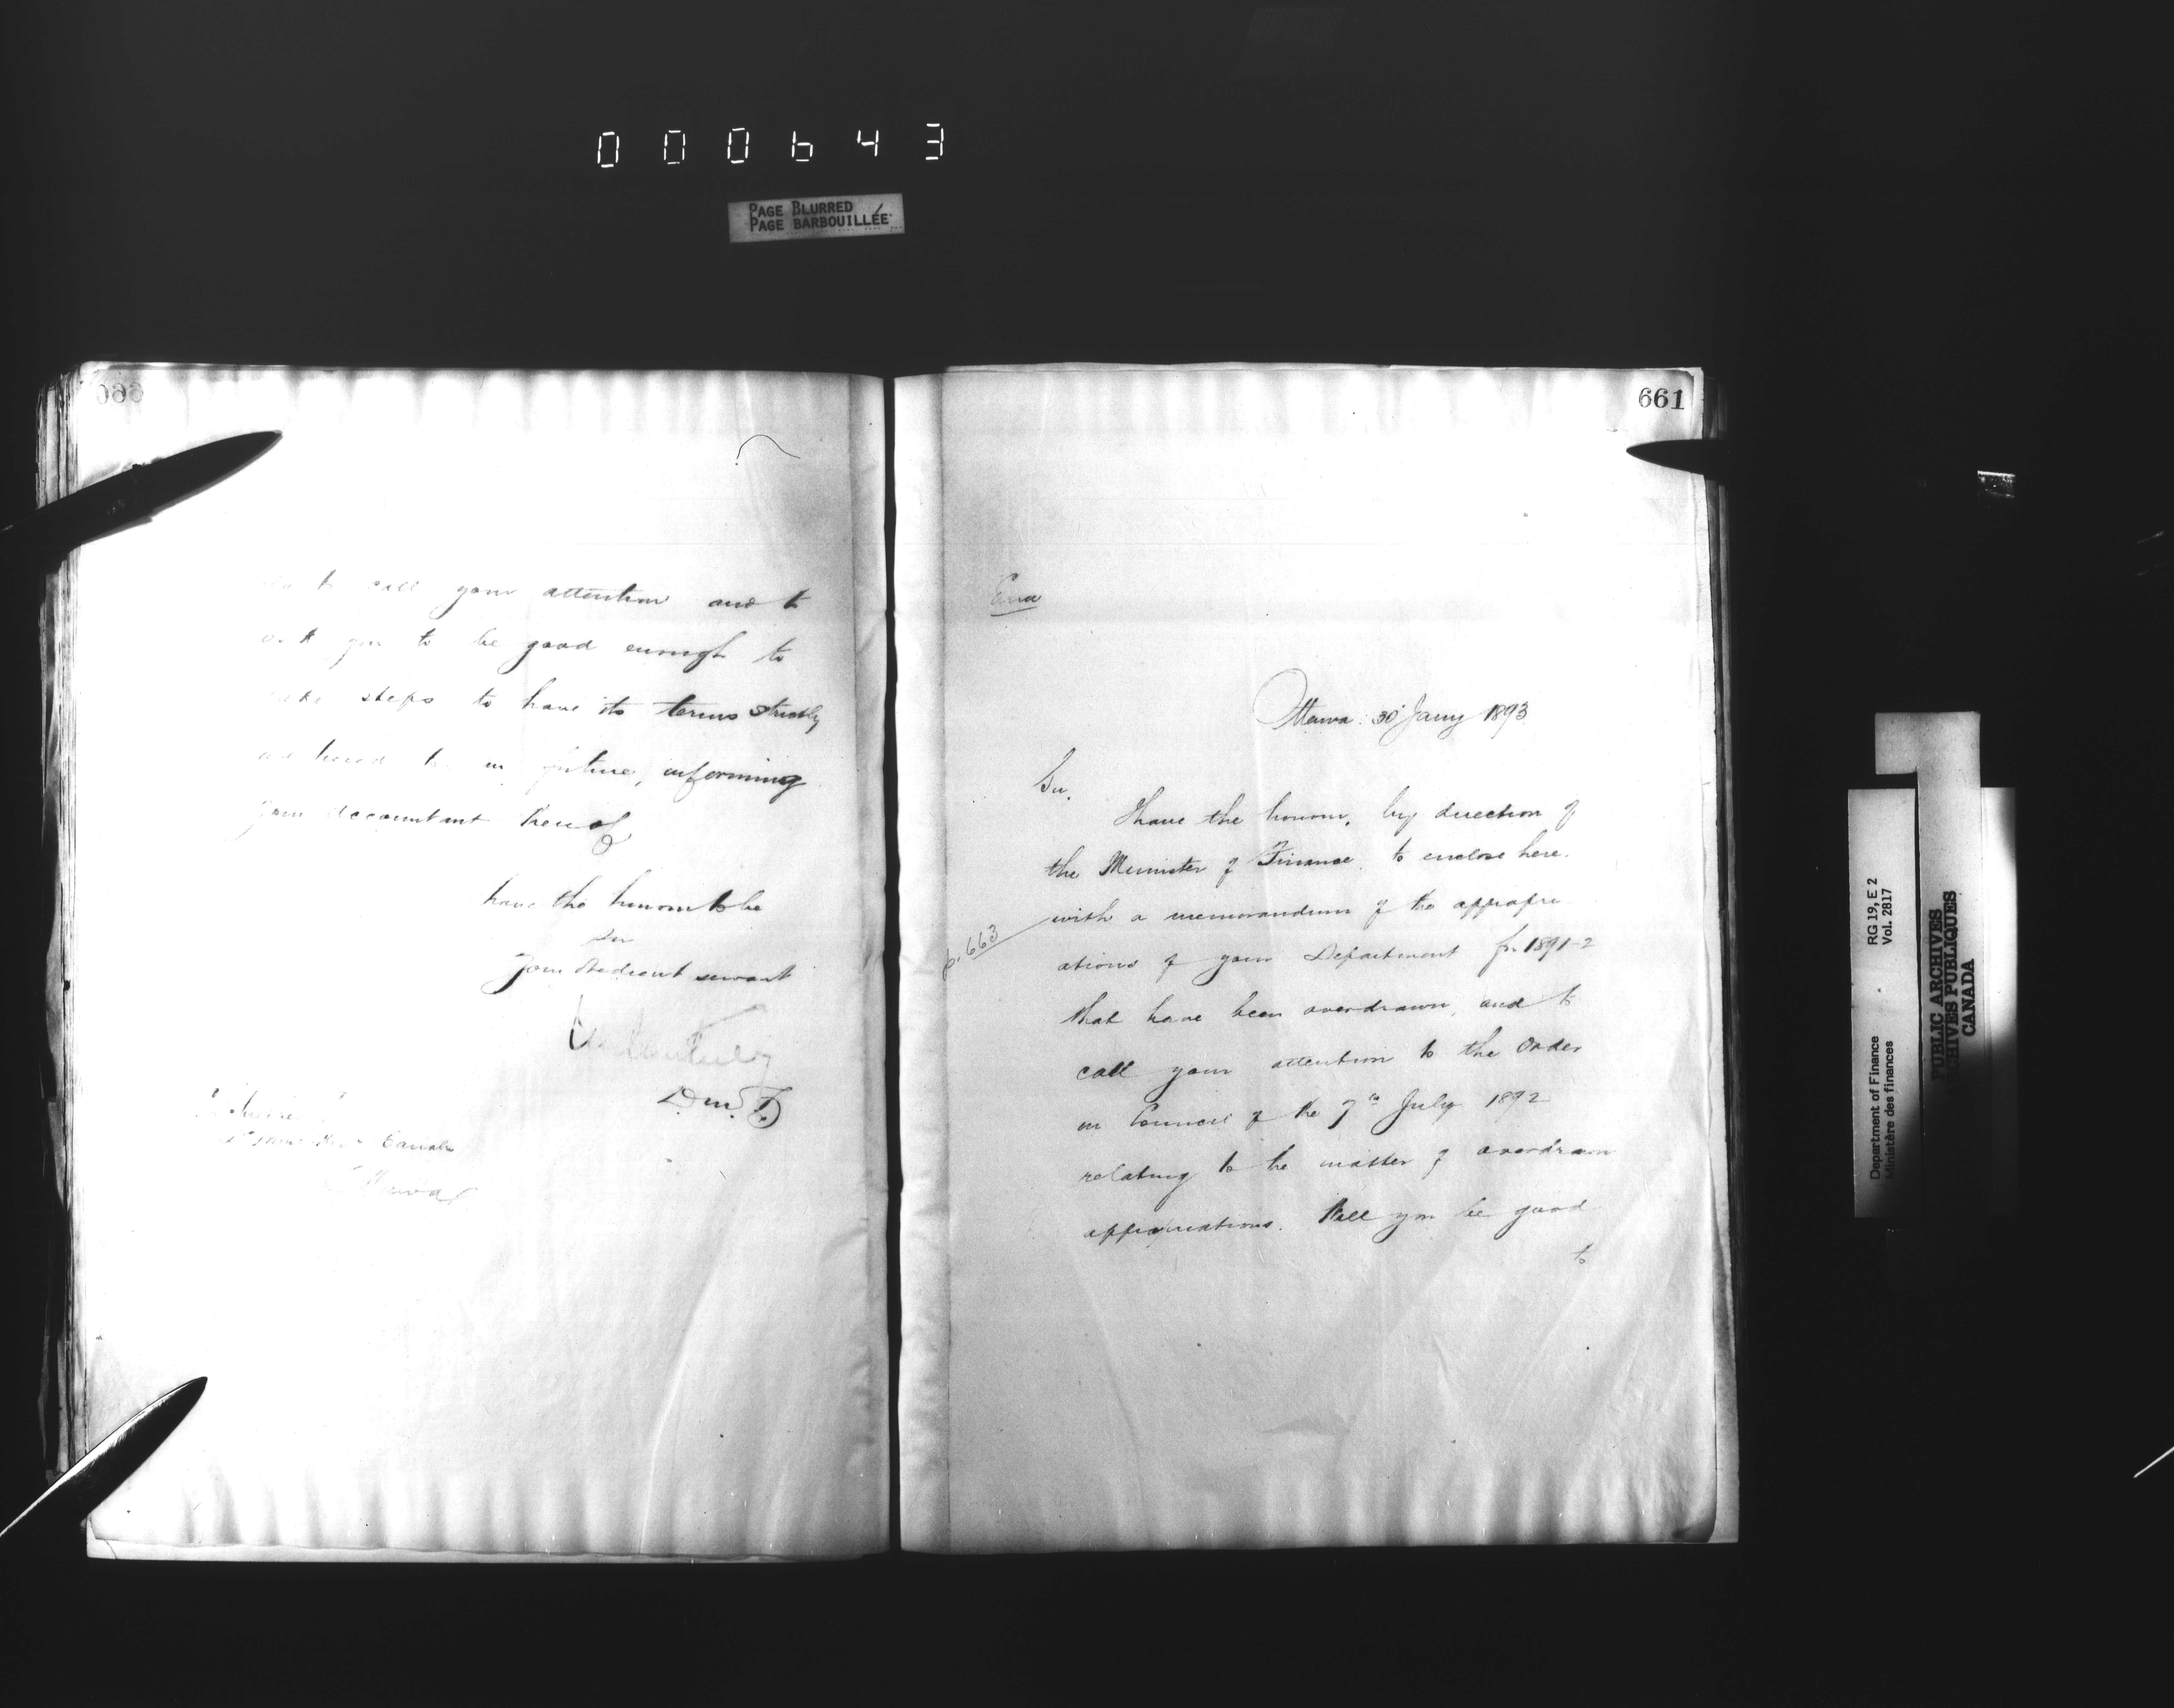 000643
PAGE BLURRED
PAGE BARBOUILLÉE
660
to call your attention and to
ask you to be good enough to
take steps to have its terms strictly
in future, informing
your accountant thereof
have the honour to be
Sir
Your obedient servant
D.M.F.
Canals
Ottawa
661
Ottawa: 30 Jany 1893
Sir,
I have the honour, by direction of
the Minister of Finance, to enclose here-
with a memorandum of the appropri
p. 663
ations of your Department for 1891-2
that have been overdrawn, and to
call your attention to the Order
in Council of the 7th July 1892
relating to the matter of overdrawn
appropriations. Will you be good
to
RG 19, E 2
Vol. 2817
Department of Finance
Ministère des finances
PUBLIC ARCHIVES
ARCHIVES PUBLIQUES
CANADA